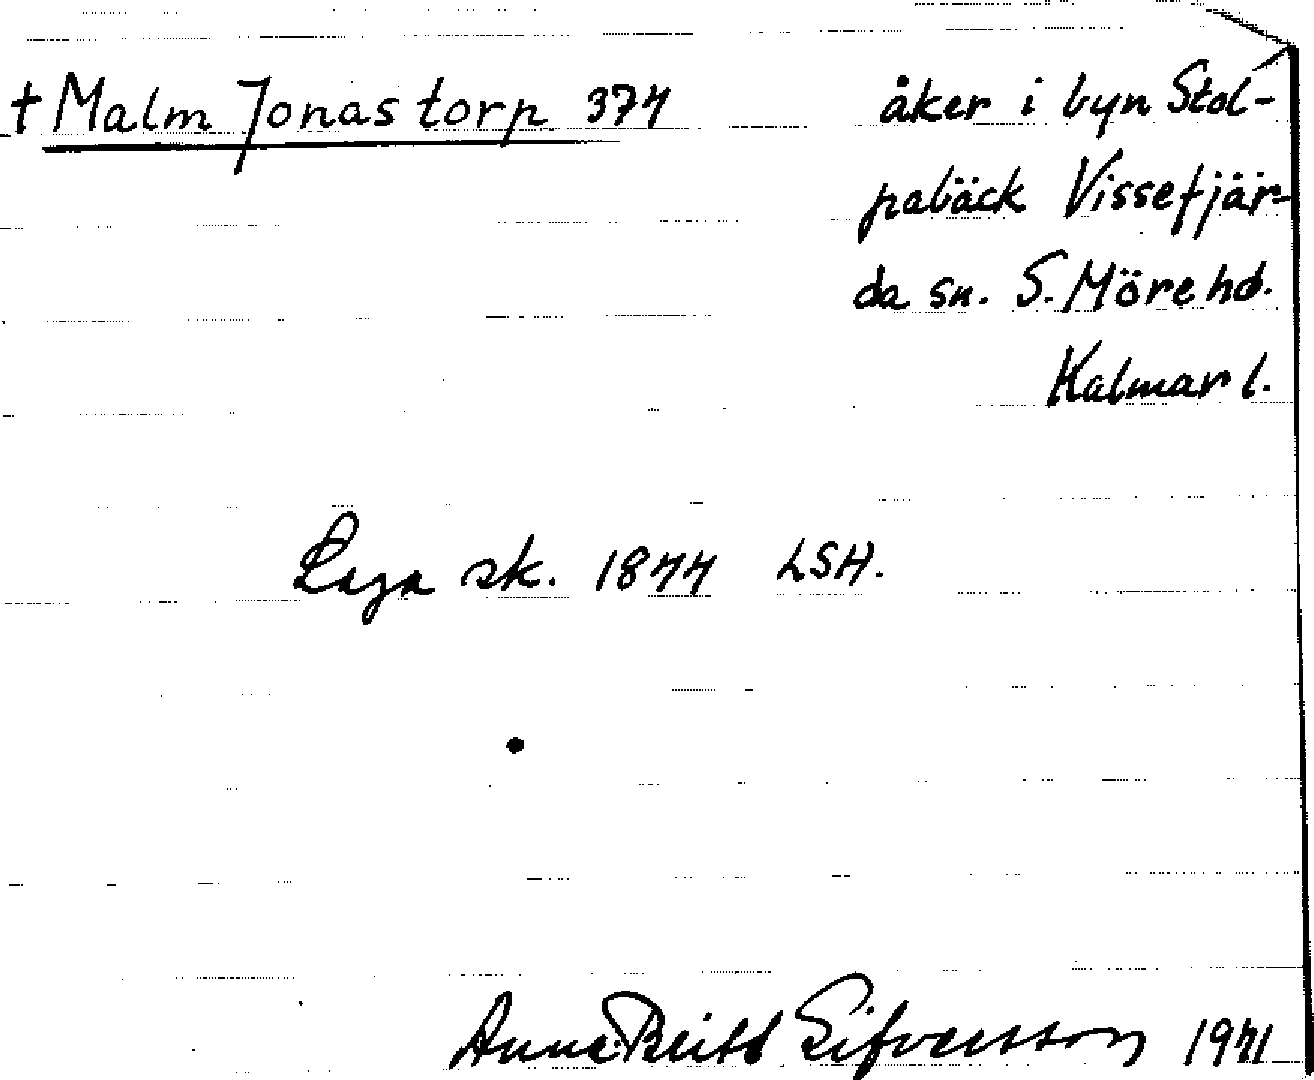 † Malm Jonas torp 374 åker i byn Stol-
pabäck Vissefjär-
da sn. S. Möre hd.
Kalmar l.
Laga sk. 1844 LSH.
Anna-Britt Sifversson 1971